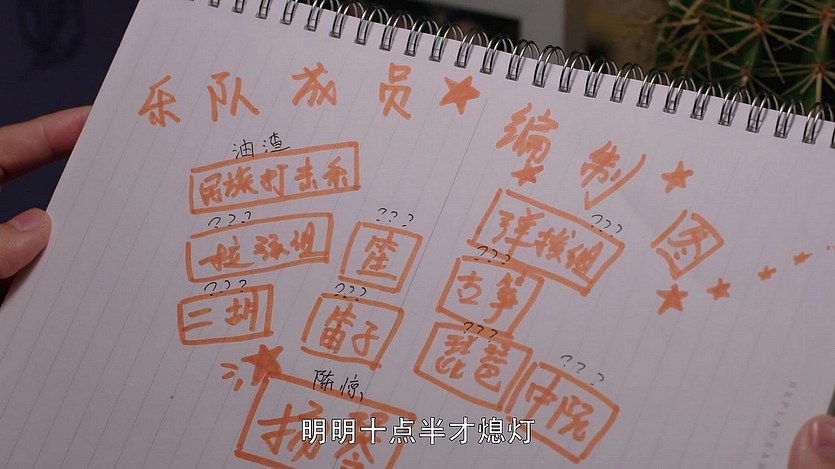 乐队成员★编制图
油渣
民族打击乐
???
拉弦组
???
笙
???
二胡
???
笛子
陈惊
扬琴
???
弹拨组
???
古筝
???
琵琶
???
中阮
REPLACEA
明明十点半才熄灯